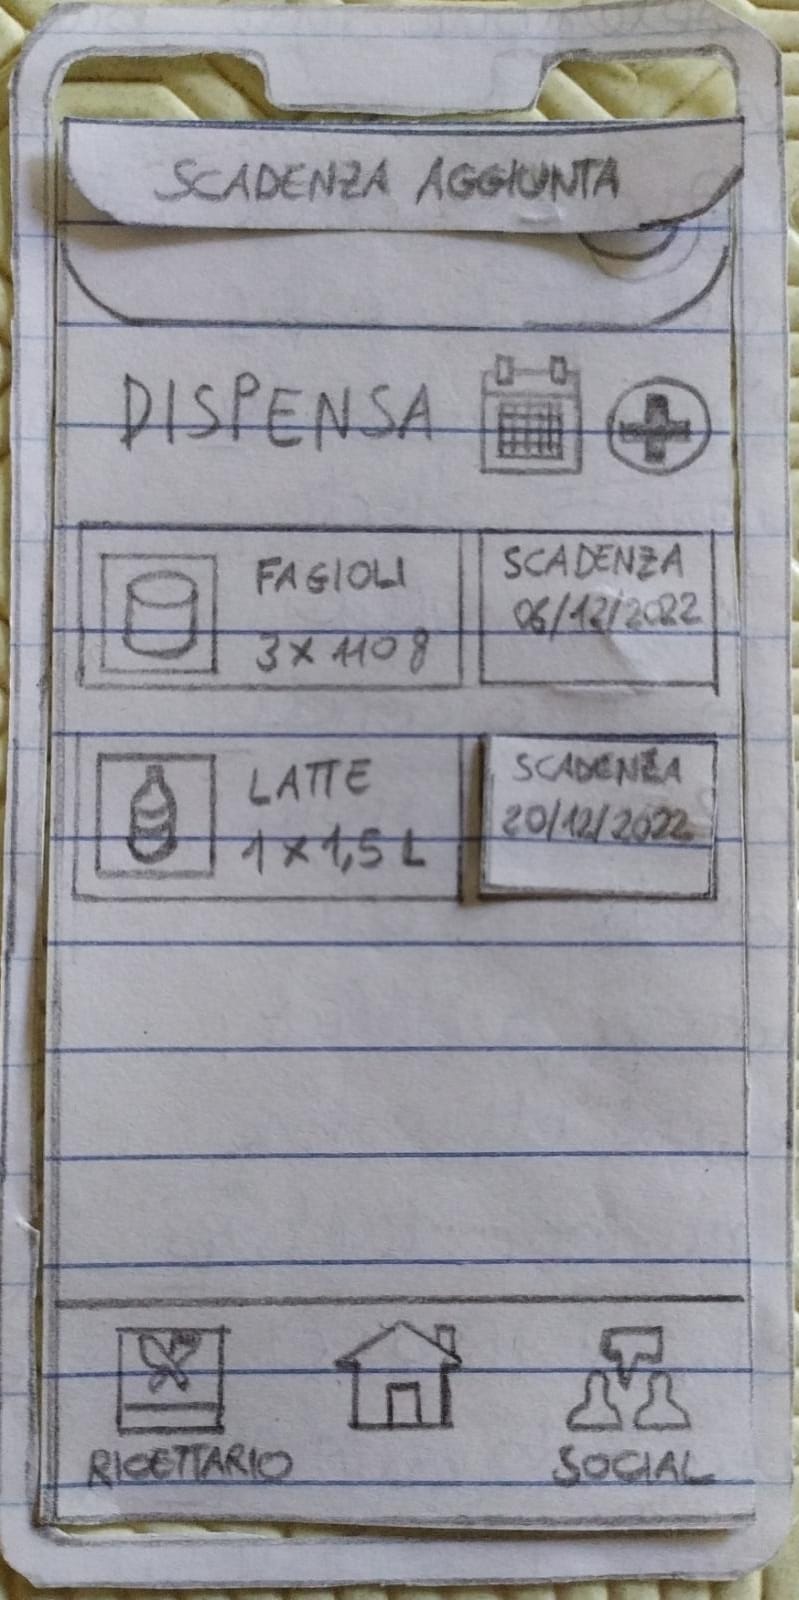 SCADENZA AGGIUNTA
DISPENSA
FAGIOLI
3 X 110 g
SCADENZA
06/12/2022
LATTE
1 X 1,5 L
SCADENZA
20/12/2022
RICETTARIO
SOCIAL